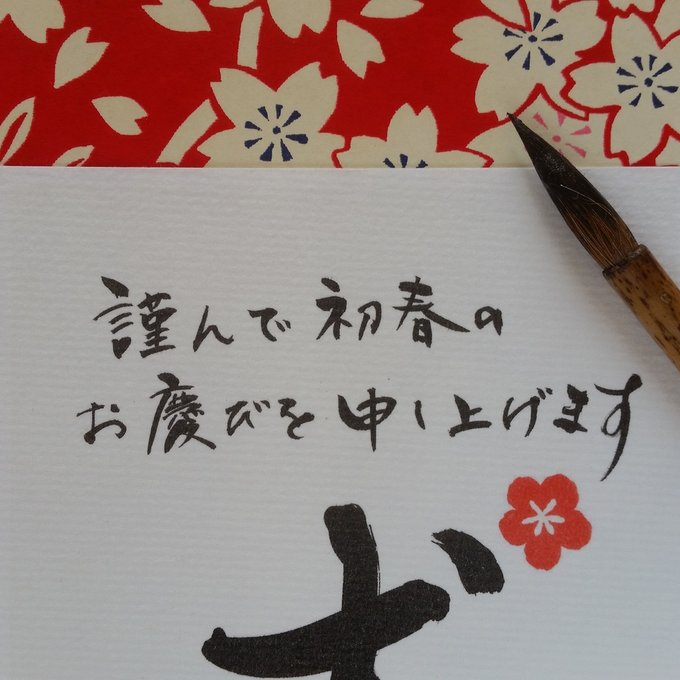 謹んで初春の
お慶びを申し上げます
犬